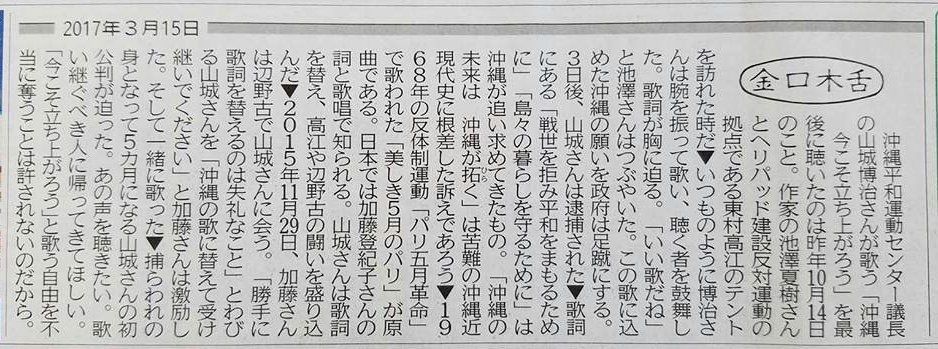 2017年3月15日
金口木舌
沖縄平和運動センター議長
の山城博治さんが歌う「沖縄
今こそ立ち上がろう」を最
後に聴いたのは昨年10月14日
のこと。作家の池澤夏樹さん
とヘリパッド建設反対運動の
拠点である東村高江のテント
を訪れた時だ▼いつものように博治さ
んは腕を振って歌い、聴く者を鼓舞し
た。歌詞が胸に迫る。「いい歌だね」
と池澤さんはつぶやいた。この歌に込
めた沖縄の願いを政府は足蹴にする。
3日後、山城さんは逮捕された▼歌詞
にある「戦世を拒み平和をまもるため
に」「島々の暮らしを守るために」は
沖縄が追い求めてきたもの。「沖縄の
未来は 沖縄が拓(ひら)く」は苦難の沖縄近
現代史に根差した訴えであろう▼19
68年の反体制運動「パリ五月革命」
で歌われた「美しき5月のパリ」が原
曲である。日本では加藤登紀子さんの
詞と歌唱で知られる。山城さんは歌詞
を替え、高江や辺野古の闘いを盛り込
んだ▼2015年11月29日、加藤さん
は辺野古で山城さんに会う。「勝手に
歌詞を替えるのは失礼なこと」とわび
る山城さんを「沖縄の歌に替えて受け
継いでください」と加藤さんは激励し
た。そして一緒に歌った▼捕らわれの
身となって5カ月になる山城さんの初
公判が迫った。あの声を聴きたい。歌
い継ぐべき人に帰ってきてほしい。
「今こそ立ち上がろう」と歌う自由を不
当に奪うことは許されないのだから。